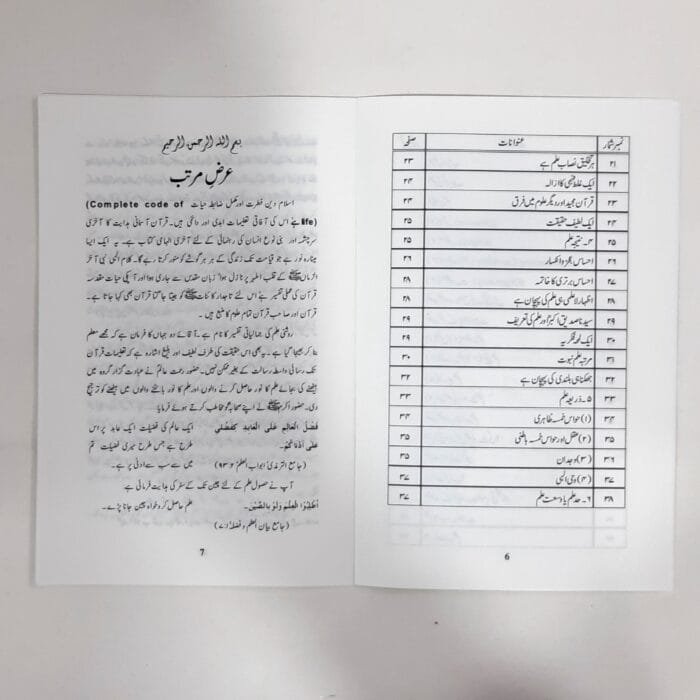 نمبر شمار عنوانات صفحہ
۲۱ ہر تخلیق نصاب علم ہے ۲۳
۲۲ ایک غلط فہمی کا ازالہ ۲۴
۲۳ قرآن مجید اور دیگر علوم میں فرق ۲۴
۲۴ ایک لطیف حقیقت ۲۵
۲۵ ۴۔ نتیجہ علم ۲۵
۲۶ احساس عجز و انکسار ۲۶
۲۷ احساس برتری کا خاتمہ ۲۸
۲۸ اظہار لاعلمی ہی علم کی پہچان ہے ۲۸
۲۹ سیدنا صدیق اکبرؓ اور علم کی تعریف ۲۹
۳۰ ایک لمحہ فکریہ ۲۹
۳۱ مرتبہ علم نبوت ۳۰
۳۲ جھکنا ہی بلندی کی پہچان ہے ۳۲
۳۳ ۵۔ ذریعہ علم ۳۳
۳۴ (۱) حواس خمسہ ظاہری ۳۴
۳۵ (۲) عقل اور حواس خمسہ باطنی ۳۵
۳۶ (۳) وجدان ۳۵
۳۷ (۴) وحی الٰہی ۳۷
۳۸ ۶۔ حد علم یا وسعت علم ۳۷
6
بسم اللہ الرحمن الرحیم
عرضِ مرتب
اسلام دین فطرت اور مکمل ضابطہ حیات (Complete code of
life) ہے اس کی آفاقی تعلیمات ابدی اور دائمی ہیں۔ قرآن آسمانی ہدایت کا آخری
سرچشمہ اور بنی نوع انسان کی رہنمائی کے لئے آخری الہامی کتاب ہے۔ یہ ایک ایسا
مینارہ نور ہے جو قیامت تک زندگی کے ہر ہر گوشے کو منور کرتا رہے گا۔ کلام الٰہی نبی آخر
الزماں ﷺ کے قلب اطہر پر نازل ہوا زبان مقدس سے جاری ہوا اور آپکی حیات مقدسہ
قرآن کی عملی تفسیر ہے اس لئے تاجدار کائنات ﷺ کو جیتا جاگتا قرآن بھی کہا جاتا ہے۔
اور صاحب قرآن تمام علوم کا منبع ہیں۔
روشنی علم کی جمالیاتی تفسیر کا نام ہے۔ آقائے دو جہاں کا فرمان ہے کہ مجھے معلم
بنا کر بھیجا گیا ہے۔ یہ بھی اس حقیقت کی طرف لطیف اور بلیغ اشارہ ہے کہ تعلیمات قرآن
تک رسائی واسطہ رسالت کے بغیر ممکن نہیں۔ حضور رحمت عالم نے عبادت گزار گروہ میں
بیٹھنے کی بجائے علم کا نور حاصل کرنے والوں اور علم کا نور بانٹنے والوں میں بیٹھنے کو ترجیح
دی۔ حضور اکرم ﷺ نے اپنے صحابہ کو مخاطب کرتے ہوئے فرمایا
فَضْلُ الْعَالِمِ عَلَى الْعَابِدِ كَفَضْلِي ایک عالم کی فضیلت ایک عابد پر اس
عَلَى أَدْنَاكُمْ۔ طرح ہے جس طرح میری فضیلت تم
(جامع الترمذی ابواب العلم ۲:۹۳) میں سے سب سے ادنیٰ پر ہے۔
آپ نے حصول علم کے لئے چین تک کے سفر کی ہدایت فرمائی ہے
اُطْلُبُوا الْعِلْمَ وَلَوْ بِالصِّيْنِ۔ علم حاصل کرو خواہ چین جانا پڑے۔
(جامع بیان العلم و فضلہ ۷:۱)
7